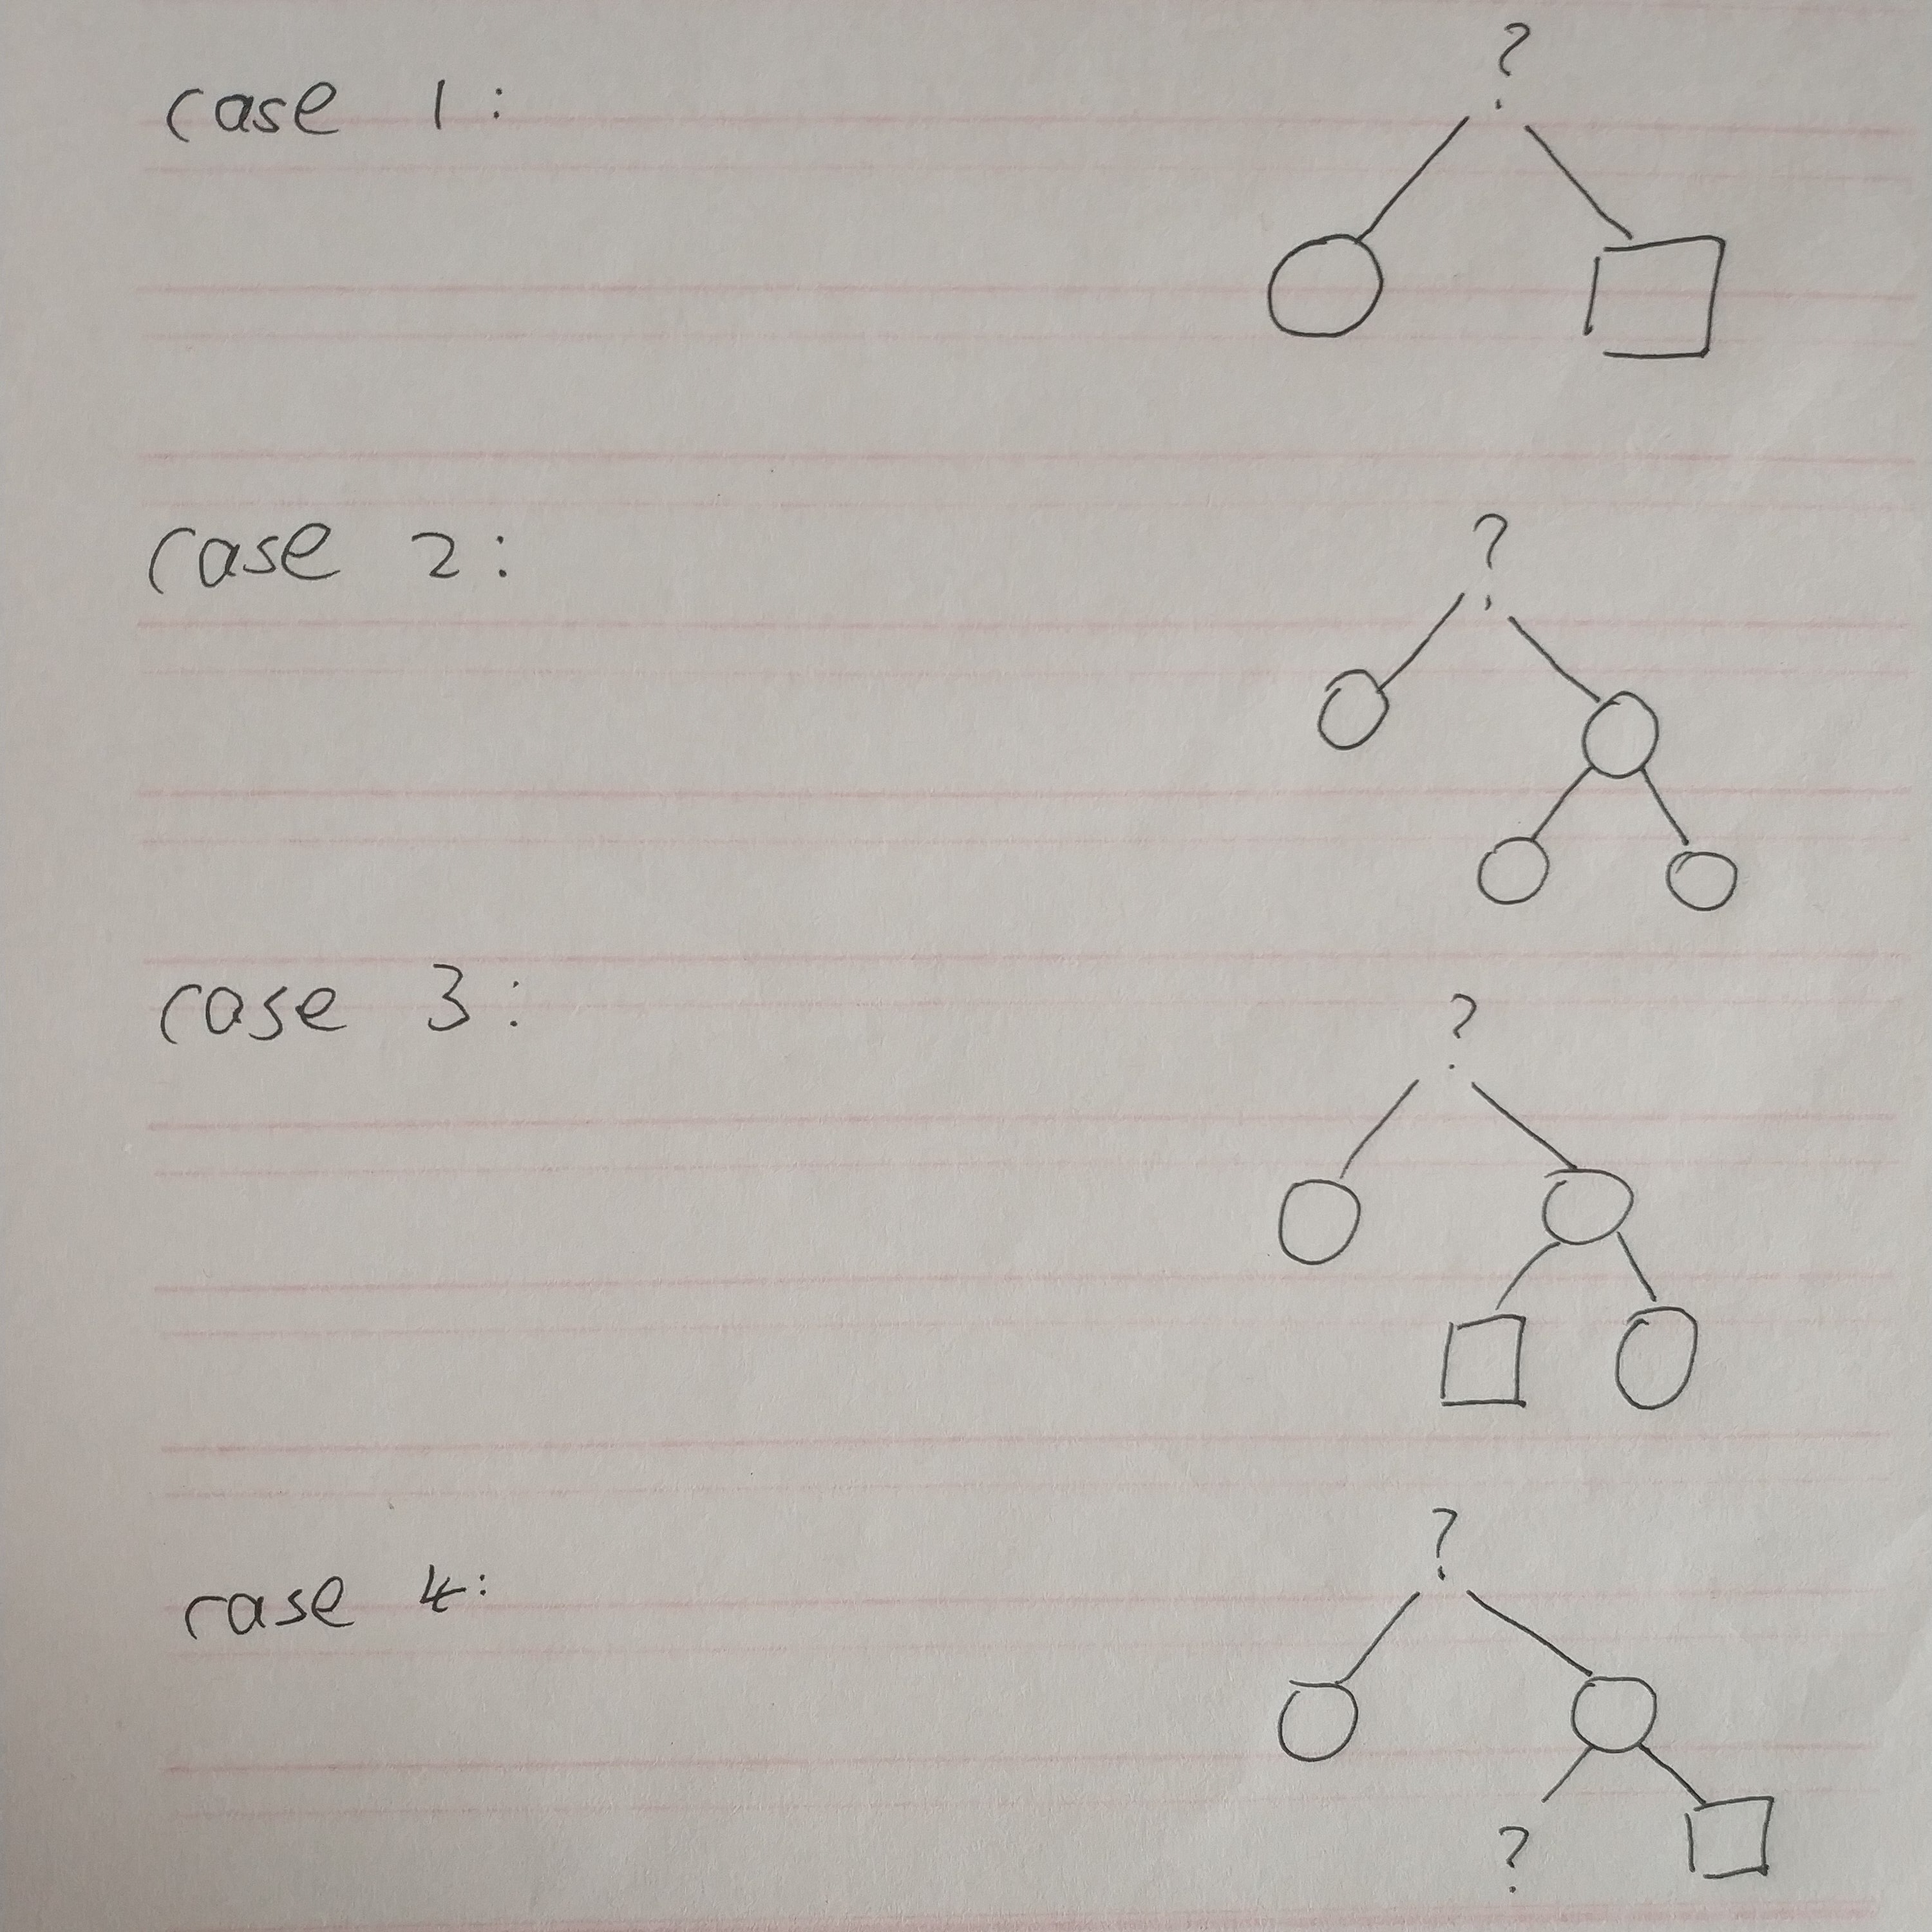 ?
case 1:
?
case 2:
?
case 3:
?
case 4:
?